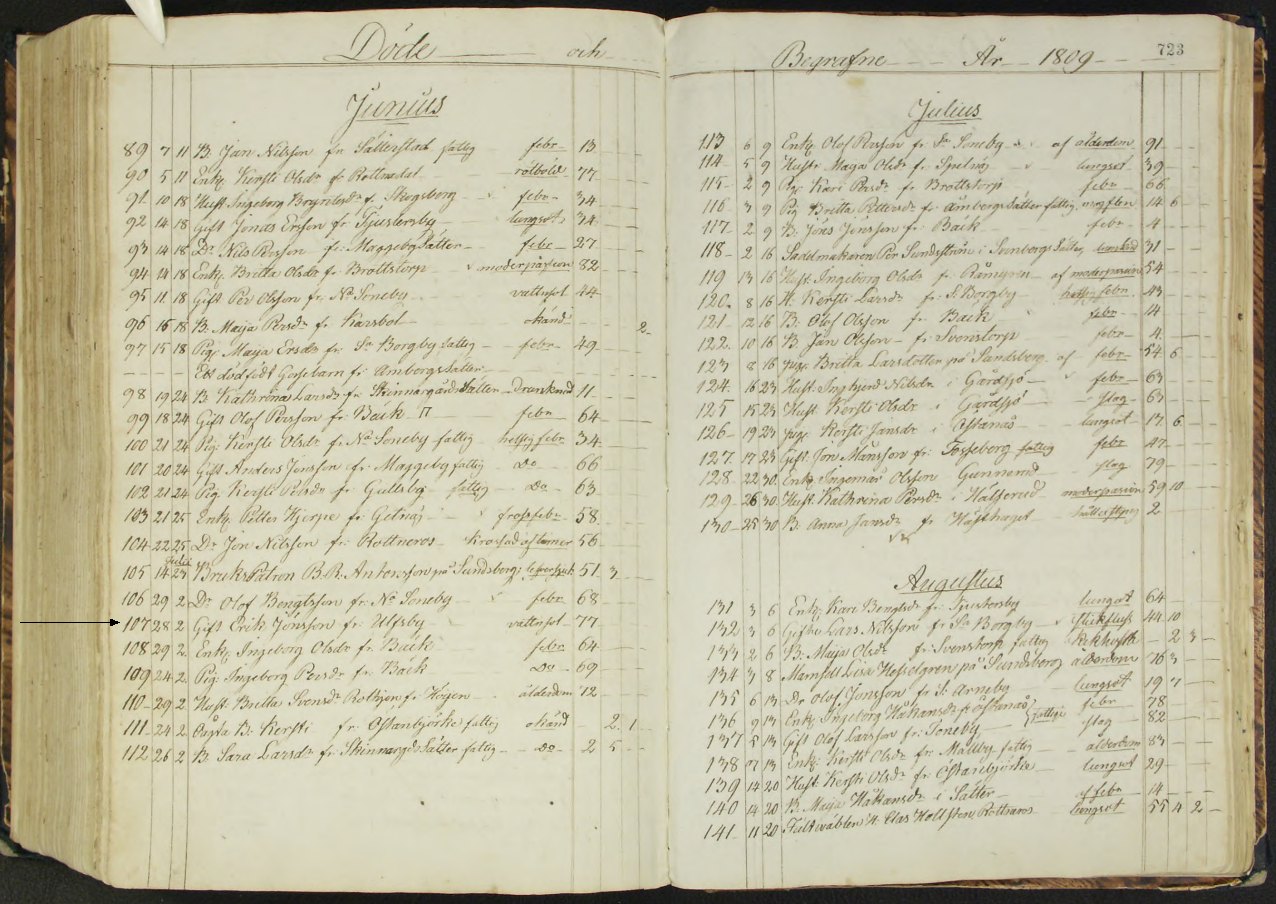 Döde och
Junius
89 7 11 B: Jan Nilsson fr: Sätterstad fattig febr 13
90 5 11 Enk: Kersti Olsdr fr Rottnedal rötböld 77
91 10 18 Hust: Ingeborg Bryntesdr f: Skogsborg febr 34
92 14 18 Gift Jonas Ersson fr Gjustersby lungsot 34
93 14 18 Dr Nils Persson fr: Maggeby Sätter febr 27
94 14 18 Enk: Britta Olsdr fr: Brottstorp moderpasion 82
95 11 18 Gift Per Olsson fr: Na Soneby vattusot 44
96 16 18 B. Maija Persdr fr Karsbol okänd 2
97 15 18 Pig: Maija Ersdr fr: Sa Borgby fattig febr 49
Ett dödfödt Gossebarn fr: Amborgs Sätter
98 19 24 B Kathrina Larsdr fr Skinnargårds Sätter Drunknad 11
99 18 24 Gift Olof Persson fr: Baik febr 64
100 21 24 Pig: Kersti Olsdr fr: Na Soneby fattig hetsig febr 34
101 20 24 Gift Anders Jonsson fr: Maggeby fattig Do 66
102 21 24 Pig Kersti Olsdr fr: Gullsby fattig Do 63
103 21 25 Enk: Petter Hjerpe fr Getnäs frossfebr 58
104 22 25 Dr Jon Nilsson fr: Rottneros Krossad af timer 56
Julii
105 14 23 Bruks Patron B. R. Antonsson på Sundsberg: 51 3
106 29 2 Dr Olof Bengtsson fr: Na Soneby febr 68
107 28 2 Gift Erik Jonsson fr: Ulfsby vattusot 77
108 29 2 Enk: Ingeborg Olsdr fr: Back febr 64
109 24 2 Pig: Ingeborg Persdr fr: Bäck Do 69
110 29 2 Hust: Britta Svensdr Rothjon fr Högen ålderdom 72
111 24 2 Oägta B: Kersti fr Östanbjörke fattig okänd 2 1
112 26 2 B: Sara Larsdr fr: Skinnargds Sätter fattig Do 2 5
Begrafne År 1809 723
Julius
113 6 9 Enk: Olof Persson fr Sa Soneby af ålderdom 91
114 5 9 Hust: Maija Olsdr fr: Spelnäs lungsot 39
115 2 9 Pig: Kari Persdr fr Brottstorp febr 66
116 3 9 Pig Britta Pettersdr fr: Ambergs Sätter fattig 14 6
117 2 9 B. Jöns Jonsson fr: Back febr 4
118 2 16 Sadelmakaren Per Sundström i Svinborgs Sätter, lungsot 31
119 13 16 Hust: Ingeborg Olsdr fr Rämyren af moderpasion 54
120 8 16 H: Kersti Larsdr fr: S: Borgby hettsig febr 43
121 12 16 B: Olof Olsson fr Back febr 14
122 10 16 B Jan Olsson fr: Svenstorp febr 4
123 8 16 pig: Britta Larsdotter på Sundsberg af febr 54 6
124 16 23 Hust: Ingbjord Nilsdr i Gårdsjö febr 63
125 15 23 Hust Kersti Olsdr i Gårdsjö slag 63
126 19 23 pig: Kersti Jansdr i Östanås lungsot 17 6
127 17 23 Gift: Jon Månsson fr: Fosseberg fattig febr 47
128 22 30 Enk: Ingemar Olsson Gunnerud slag 79
129 26 30 Hust: Kathrina Persdr i Hälserud moderpasion 59 10
130 25 30 B: Anna Jansdr fr Hästhaget 2
Augustus
131 3 6 Enk: Kare Bengtsdr fr: Gjustersby lungsot 64
132 3 6 Gifte Lars Nilsson fr Sa Borgby stikfluss 44 10
133 2 6 B: Maija Olsdr fr: Svenstorp fattig Kikhosta 2 3
134 3 8 Mamsell Lisa Hesselgren på Sundsberg ålderdom 76 3
135 6 13 Dr Olof Jonsson fr S: Arneby lungsot 19 7
136 9 13 Enk: Ingeborg Håkansdr fr Östanås fattige febr 78
137 5 13 Gift Olof Larsson fr: Soneby slag 82
138 7 13 Enk: Kersti Olsdr fr: Mällby fattig ålderdom 83
139 14 20 Hust: Kersti Olsdr fr Östanbjörke lungsot 29
140 14 20 B: Maija Håkansdr i Sätter af febr 14
141 11 20 Fältwäbeln H: Clas Hellsten, Rottneros lungsot 55 4 2